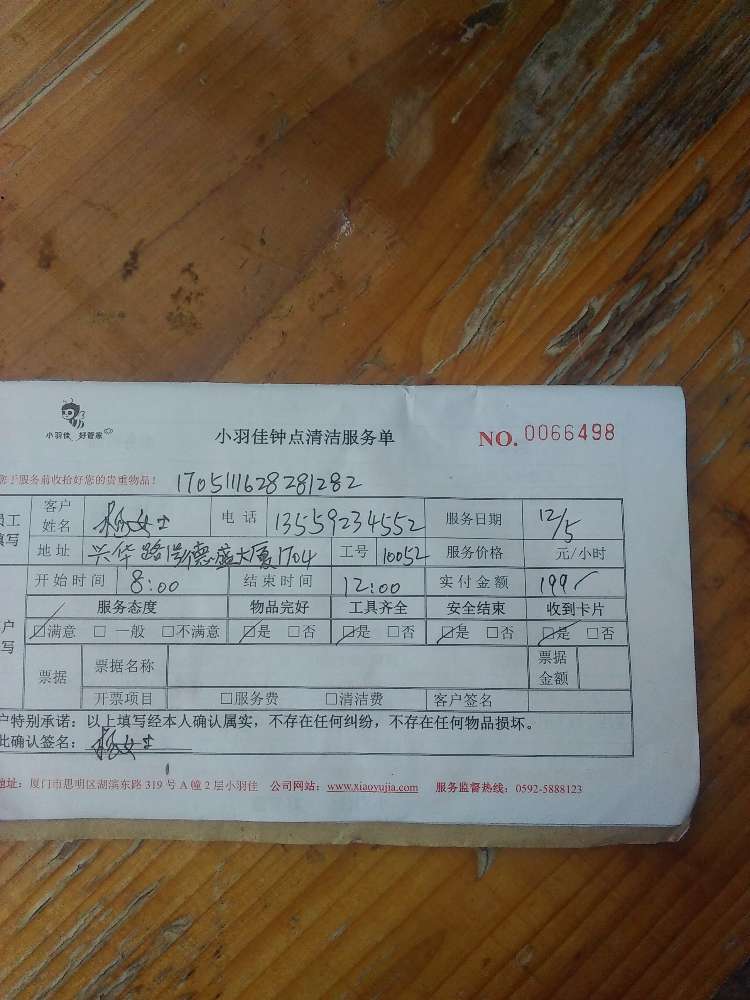 小羽佳 好管家
小羽佳钟点清洁服务单
NO. 0066498
您于服务前收拾好您的贵重物品！
1705111628281282
员工填写 客户姓名 杨女士 电话 13559234552 服务日期 12/5
地址 兴华路 德盛大厦1704 工号 10052 服务价格 元/小时
开始时间 8:00 结束时间 12:00 实付金额 199
服务态度 物品完好 工具齐全 安全结束 收到卡片
户写 ☑满意 □一般 □不满意 ☑是 □否 ☑是 □否 ☑是 □否 ☑是 □否
票据 票据名称 票据金额
开票项目 □服务费 □清洁费 客户签名
户特别承诺：以上填写经本人确认属实，不存在任何纠纷，不存在任何物品损坏。
此确认签名：杨女士
地址：厦门市思明区湖滨东路 319 号 A 幢 2 层小羽佳 公司网站：www.xiaoyujia.com 服务监督热线：0592-5888123